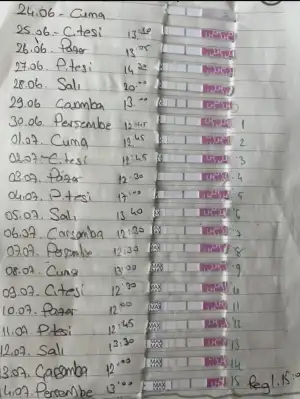 24.06 - Cuma
25.06 - C.tesi 13:30
26.06. Pazar 13:05
27.06 P.tesi 14:30
28.06. Salı 20:00
29.06 Çarşamba 13:00
30.06. Perşembe 12:45 1
01.07. Cuma 12:45 2
02.07 - C.tesi 12:45 3
03.07. Pazar 12:30 4
04.07. P.tesi 17:00 5
05.07. Salı 13:40 6
06.07. Çarşamba 12:30 7
07.07. Perşembe 12:30 8
08.07. Cuma 13:00 9
09.07. C.tesi 12:30 10
10.07. Pazar 12:00 11
11.07 P.tesi 12:45 12
12.07. Salı 13:30 13
13.07. Çarşamba 12:00 14
14.07. Perşembe 13:00 15 Regl.